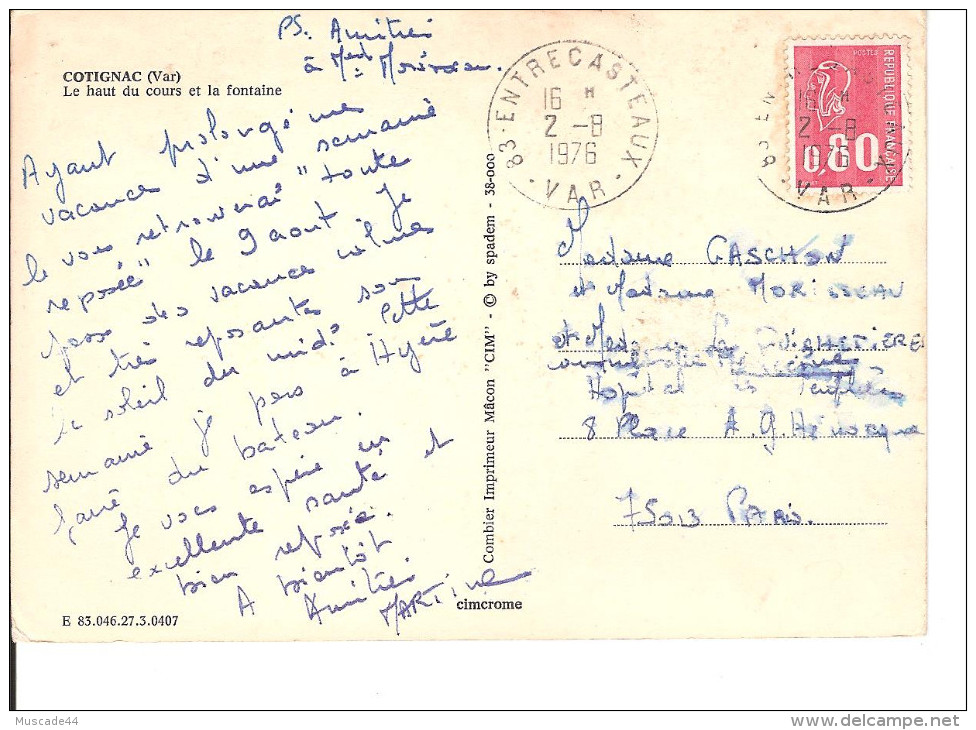 PS. Amitiés
à
COTIGNAC (Var)
Le haut du cours et la fontaine
Ayant prolongé mes
vacances d'une semaine
je vous retrouverai "toute
reposée" le 9 aout. Je
passe des vacances calmes
et très reposantes sous
le soleil du midi. Cette
semaine je pars à Hyère
faire du bateau.
Je vous espère en
excellente santé et
bien reposée.
A bientôt
Amitiés
MARTINE
E 83.046.27.3.0407
Combier Imprimeur Mâcon "CIM" - © by spadem - 38-000
cimcrome
83-ENTRECASTEAUX
16 H
2 -8
1976
- VAR -
POSTES
REPUBLIQUE FRANÇAISE
0,80
16 H
2 -8
1976
- VAR -
Madame GASCHON
et Madame MORISSEAU
et Madame
Hôpital
8 Place A. G. Hénocque
75013 PARIS.
Muscade44
www.delcampe.net